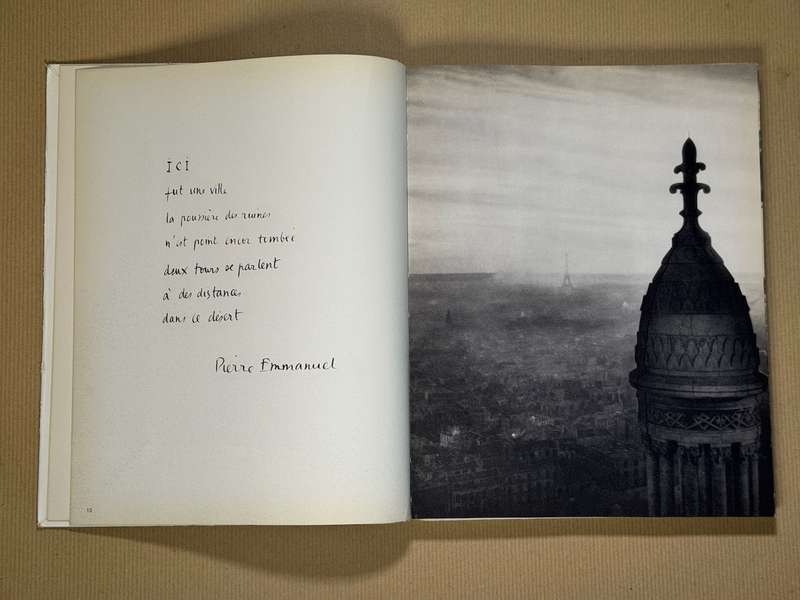 ici
fut une ville
la poussière des ruines
n'est point encor tombée
deux tours se parlent
à des distances
dans ce désert
Pierre Emmanuel